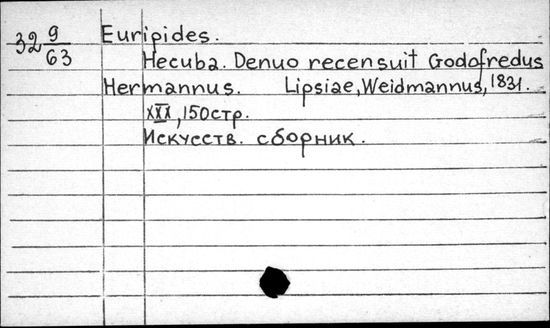 32 9/63
Euripides.
Hecuba. Denuo recensuit Godofredus
Hermannus. Lipsiae, Weidmannus, 1831.
XXX, 150стр.
Искусств. сборник.